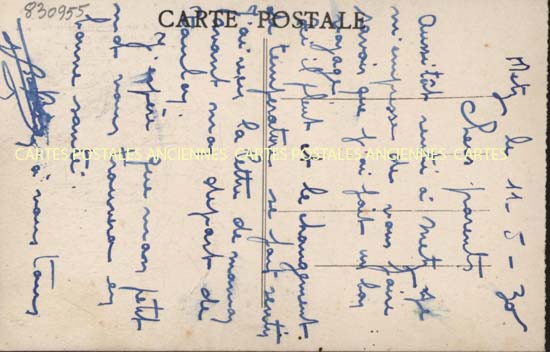 830955
CARTE POSTALE
CARTES POSTALES ANCIENNES CARTES POSTALES ANCIENNES CARTES
Metz le 11-5-30
Chers parents
Aussitôt arrivé à Metz je
m'empresse de vous faire
savoir que j'ai fait un bon
voyage
Ici il pleut et le changement
de température se fait sentir
J'ai vu la lettre de maman
avant mon départ de
Toulon
J'espère que mon petit
mot vous trouvera en
bonne santé
à vous tous